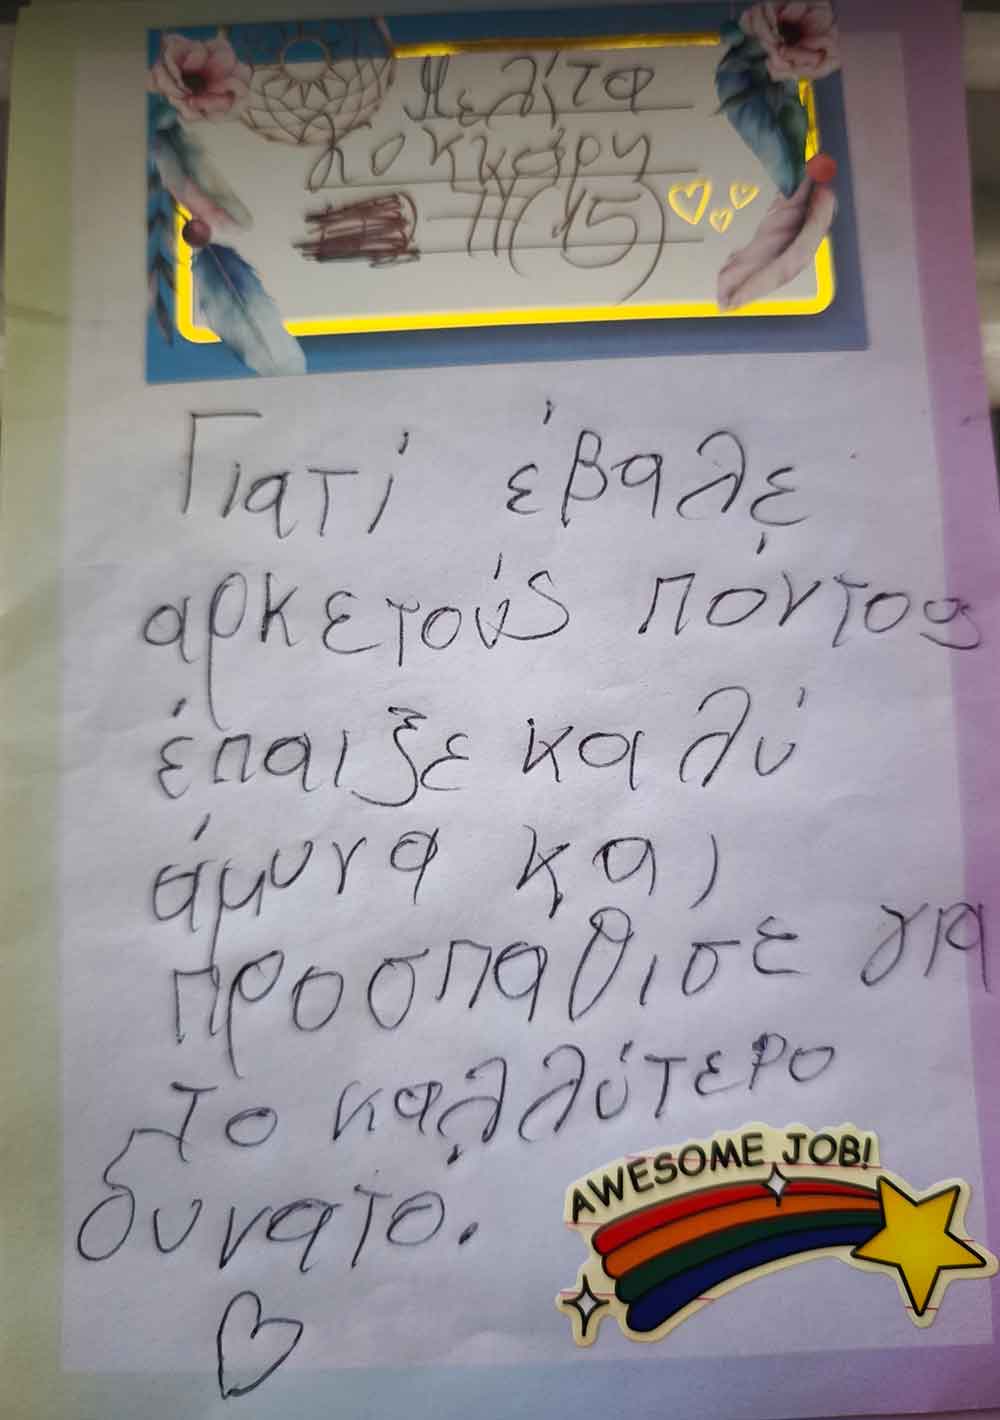 Μελίτα
Κοκκιάρη
Π(15)
Γιατί έβαλε
αρκετούς πόντος
έπαιξε καλύ
άμυνα και
προσπάθισε για
το καλλύτερο
δυνατό.
AWESOME JOB!